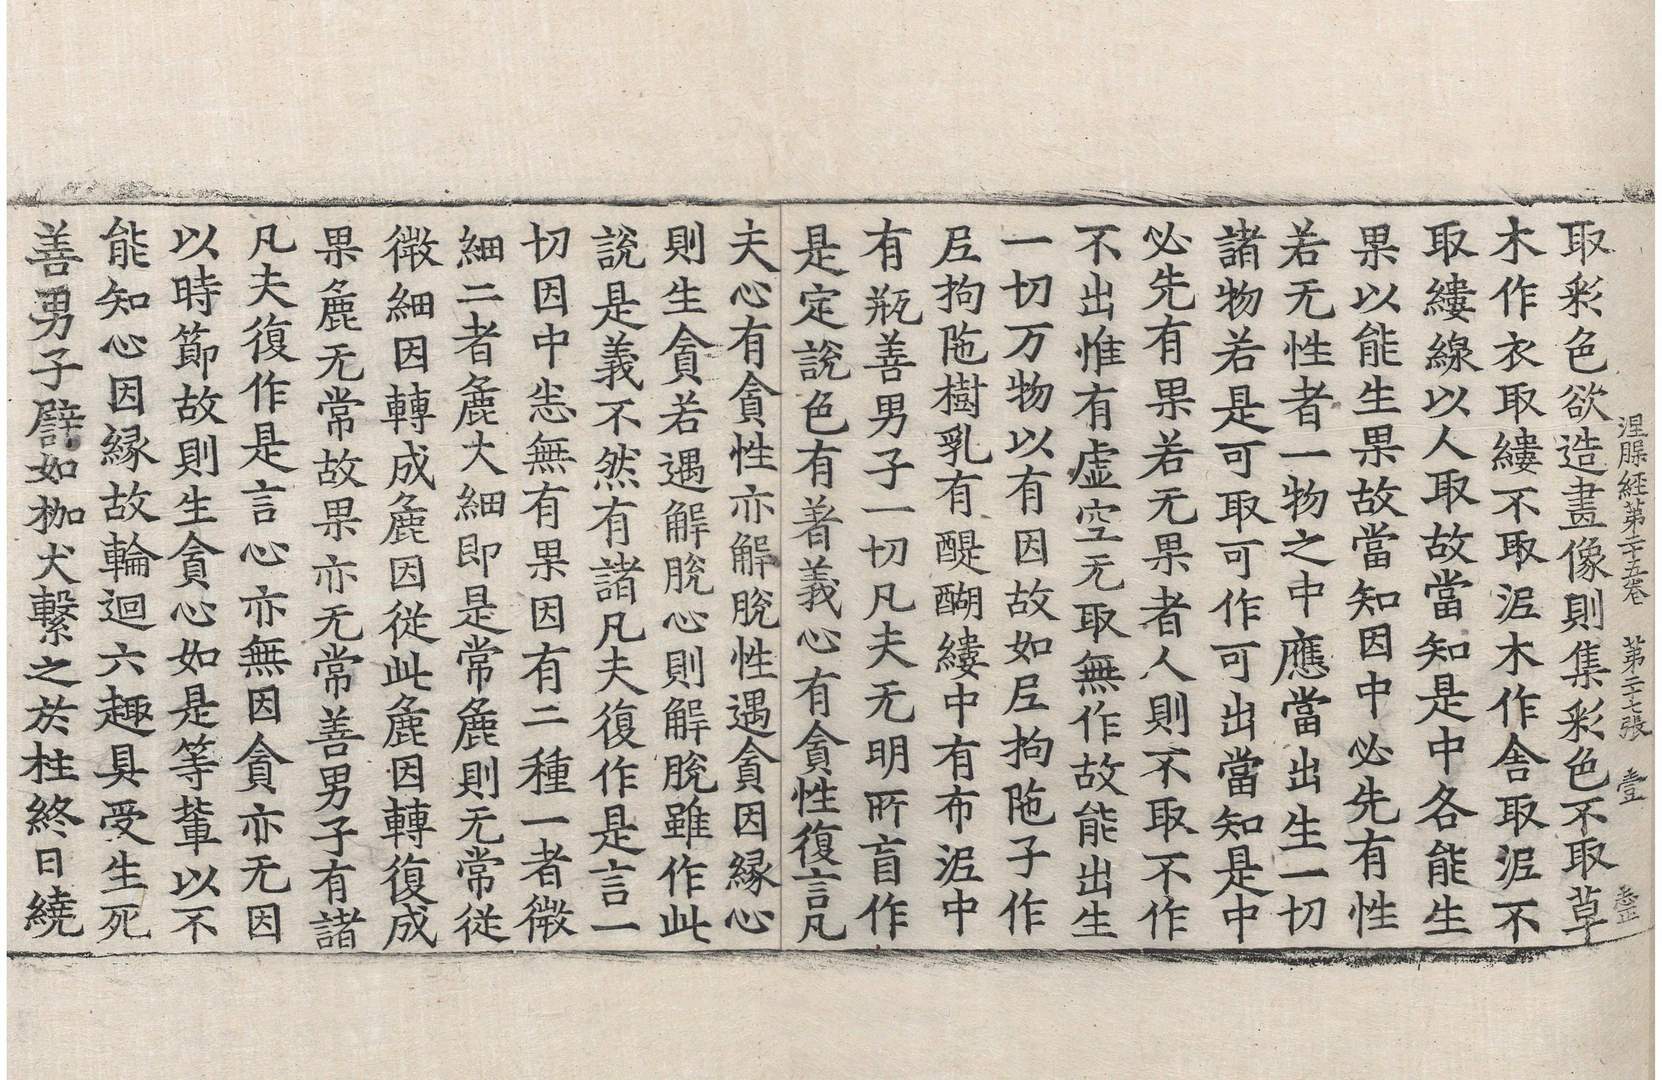 涅槃經第二十五卷 第二十七張 壹
取彩色欲造畫像則集彩色不取草
木作衣取縷不取泥木作舎取泥不
取縷線以人取故當知是中各能生
果以能生果故當知因中必先有性
若无性者一物之中應當出生一切
諸物若是可取可作可出當知是中
必先有果若无果者人則不取不作
不出惟有虛空无取無作故能出生
一切万物以有因故如尼拘陁子作
尼拘陁樹乳有醍醐縷中有布泥中
有瓶善男子一切凡夫无明所盲作
是定說色有著義心有貪性復言凡
夫心有貪性亦解脫性遇貪因緣心
則生貪若遇解脫心則解脫雖作此
說是義不然有諸凡夫復作是言一
切因中悉無有果因有二種一者微
細二者麁大細即是常麁則无常從
微細因轉成麁因從此麁因轉復成
果麁无常故果亦无常善男子有諸
凡夫復作是言心亦無因貪亦无因
以時節故則生貪心如是等輩以不
能知心因緣故輪迴六趣具受生死
善男子譬如枷犬繫之於柱終日繞